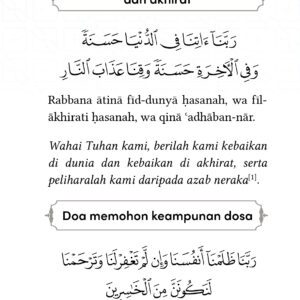 dan akhirat
رَبَّنَا ءَاتِنَا فِي الدُّنْيَا حَسَنَةً
وَفِي الْآخِرَةِ حَسَنَةً وَقِنَا عَذَابَ النَّارِ
Rabbana ātinā fid-dunyā ḥasanah, wa fil-
ākhirati ḥasanah, wa qinā ‘adhāban-nār.
Wahai Tuhan kami, berilah kami kebaikan
di dunia dan kebaikan di akhirat, serta
peliharalah kami daripada azab neraka[1].
Doa memohon keampunan dosa
رَبَّنَا ظَلَمْنَا أَنْفُسَنَا وَإِن لَّمْ تَغْفِرْ لَنَا وَتَرْحَمْنَا
لَنَكُونَنَّ مِنَ الْخَاسِرِينَ